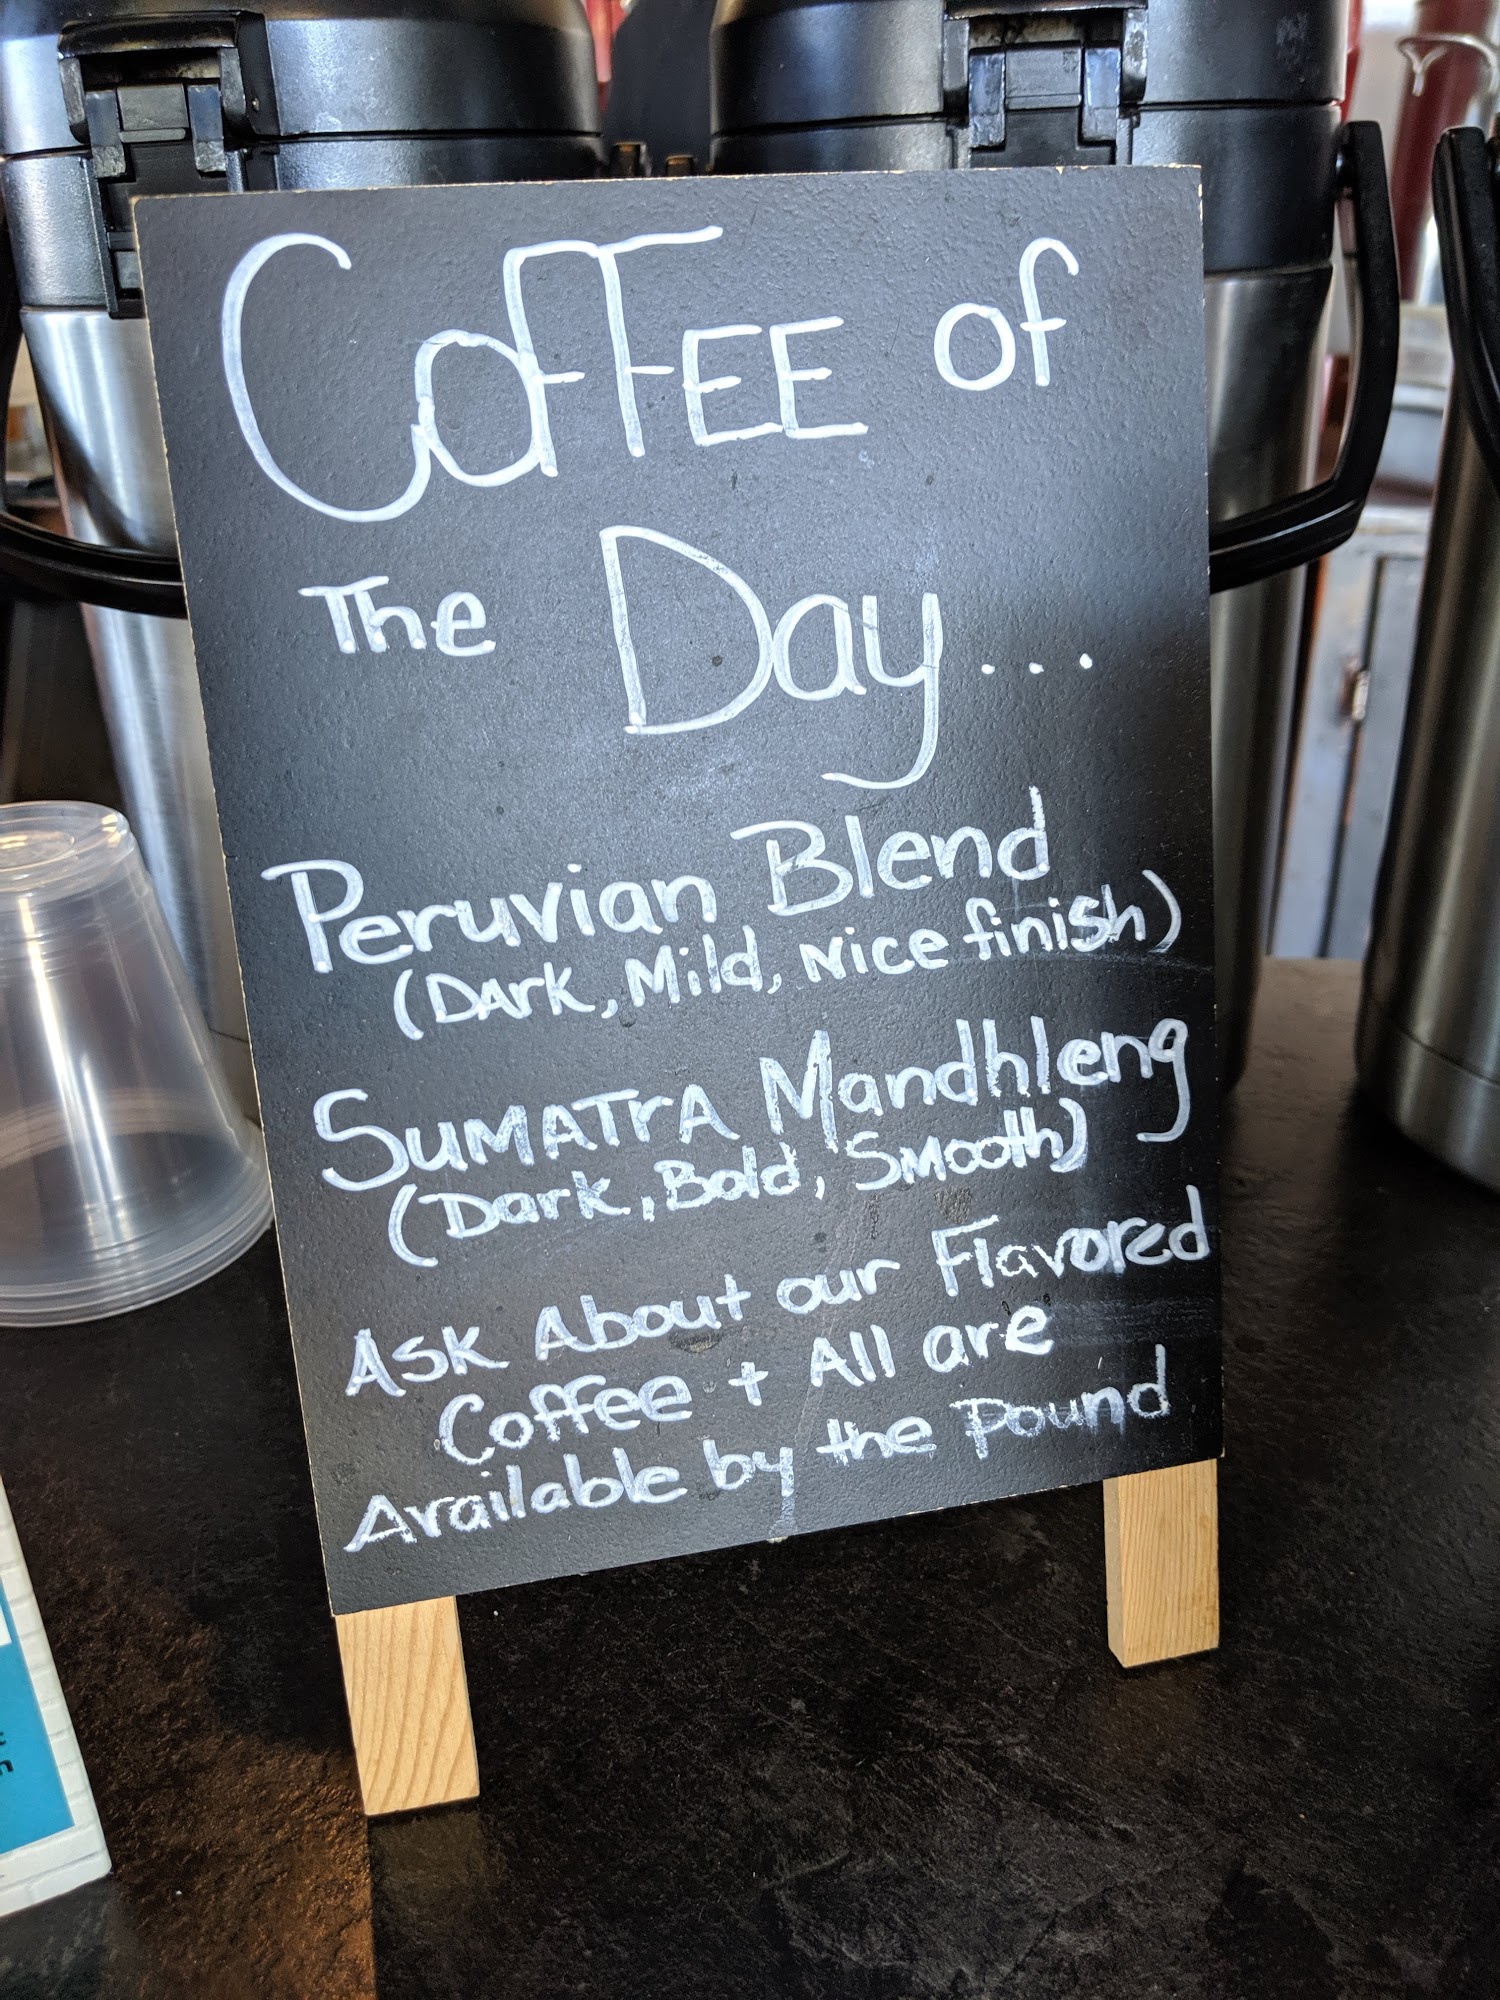 COFFEE of
The Day...
Peruvian Blend
(DArk, Mild, Nice finish)
SUMATrA Mandhleng
(Dark, Bold, Smooth)
ASK About our Flavored
Coffee + All are
Available by the Pound